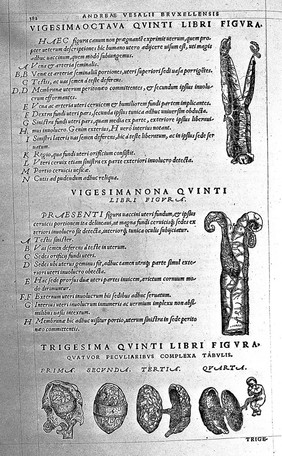 582 ANDREAE VESALII BRUXELLENSIS
VIGESIMAOCTAVA QVINTI LIBRI FIGVRA.
HAEC figura canum non prægnantẽ exprimit uterum, quem pro-
pter uterum descriptiones hic humano utero adijcere uisum est, uti magis
adhuc uaccinum, quem modò subiungemus.
A Vena & arteria seminalis.
B, B Venæ et arteriæ seminalis portiones, uteri superiori sedi uasa porrigẽtes.
C Testis, ac uas semen à teste deferens.
D, D Membranæ uterum peritonæo committentes, & secundum ipsius inuolu-
crum efformantes.
E Vena ac arteria uteri ceruicem & humiliorem fundi partem implicantes.
F Dextra fundi uteri pars, secunda ipsius tunica adhuc uniuersim obsessa.
G Sinistra fundi uteri pars, quam media ex parte, exteriori ipsius liberaui-
H, mus inuolucro. G enim exterius, H uerò interius notant.
I Sinistri lateris uas semen deferens, hic à teste liberatum, ac in ipsius sede ser
uatum.
K Regio, qua fundi uteri orificium consistit.
L Vteri ceruix etiam sinistra ex parte exteriori inuolucro detecta.
M Portio ceruicis uesicæ.
N Cutis ad pudendum adhuc reliqua.
VIGESIMANONA QVINTI
LIBRI FIGVRA.
PRAESENTI figura uaccini uteri fundum, & ipsius
ceruicis portionem ita delineaui, ut magna fundi ceruicisq; sedes ex
teriori inuolucro sit detecta, interiorq; tunica oculis subijciatur.
A Testis sinister.
B Vas semen deferens à teste in uterum.
C Sedes orificij fundi uteri.
D Sedes ubi uterus geminus fit, adhuc tamen utraq; parte simul exte-
riori uteri inuolucro obtecta.
E Hac sede prorsus duæ uteri partes inuicem, arietum cornuum mo-
do diriuantur.
F, F Externum uteri inuolucrum his sedibus adhuc seruatum.
G Interius uteri inuolucrum innumeris ac uermium implexu non absi-
milibus uasis intextum.
H Membranæ hic adhuc uisitur portio, uterum sinistra in sede perito
næo committentis.
TRIGESIMA QVINTI LIBRI FIGVRA,
QVATVOR PECVLIARIBVS COMPLEXA TABVLIS.
PRIMA. SECVNDA. TERTIA. QVARTA.
TRIGE-